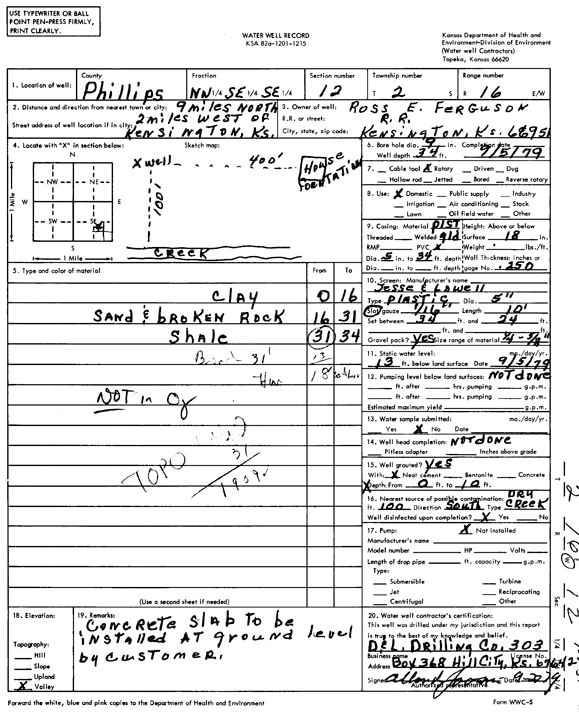 USE TYPEWRITER OR BALL
POINT PEN-PRESS FIRMLY,
PRINT CLEARLY.
WATER WELL RECORD
KSA 82a-1201-1215
Kansas Department of Health and
Environment-Division of Environment
(Water well Contractors)
Topeka, Kansas 66620
1. Location of well:
County
Phillips
Fraction
NW 1/4 SE 1/4 SE 1/4
Section number
12
Township number
T 2 S
Range number
R 16 E/W
2. Distance and direction from nearest town or city: 9 miles North
2 miles west of
Street address of well location if in city: Kensington, Ks.
3. Owner of well: Ross E. Ferguson
R.R. or street: R.R.
City, state, zip code: Kensington, Ks. 66951
4. Locate with "X" in section below:
Sketch map:
N
NW NE
W E
SW SE
S
1 Mile
1 Mile
X well 400'
House
100'
Creek
5. Type and color of material
From To
Clay 0 16
Sand & broken Rock 16 31
Shale 31 34
31'
13
18
Not in Og
TOPO
31
1939
(Use a second sheet if needed)
6. Bore hole dia. 9 in. Completion date
Well depth 34 ft. 9/5/79
7. Cable tool X Rotary Driven Dug
Hollow rod Jetted Bored Reverse rotary
8. Use: X Domestic Public supply Industry
Irrigation Air conditioning Stock
Lawn Oil field water Other
9. Casing: Material Plst Height: Above or below
Threaded Welded gld Surface 18 in.
RMP PVC X Weight lbs./ft.
Dia. 5 in. to 34 ft. depth Wall Thickness: inches or
Dia. in. to ft. depth gage No. .250
10. Screen: Manufacturer's name
Jesse & Lowell
Type Plastic Dia. 5"
Slot/gauze 1/16 Length 10'
Set between 34 ft. and 24 ft.
ft. and ft.
Gravel pack? Yes Size range of material 1/4-5/8"
11. Static water level: mo./day/yr.
13 ft. below land surface Date 9/5/79
12. Pumping level below land surfaces: Not done
ft. after hrs. pumping g.p.m.
ft. after hrs. pumping g.p.m.
Estimated maximum yield g.p.m.
13. Water sample submitted: mo./day/yr.
Yes X No Date
14. Well head completion: Not done
Pitless adapter Inches above grade
15. Well grouted? Yes
With: X Neat cement Bentonite Concrete
Depth: From 0 ft. to 10 ft.
16. Nearest source of possible contamination: Dry
ft. 100 Direction South Type Creek
Well disinfected upon completion? X Yes No
17. Pump: X Not installed
Manufacturer's name
Model number HP Volts
Length of drop pipe ft. capacity g.p.m.
Type:
Submersible Turbine
Jet Reciprocating
Centrifugal Other
18. Elevation:
Topography:
Hill
Slope
Upland
X Valley
19. Remarks:
Concrete slab to be
installed at ground level
by customer.
20. Water well contractor's certification:
This well was drilled under my jurisdiction and this report
is true to the best of my knowledge and belief.
Del. Drilling Co. 303
Business name License No.
Address Box 368 Hill City, Ks. 67642
Signed Date
Authorized representative
Forward the white, blue and pink copies to the Department of Health and Environment
Form WWC-5